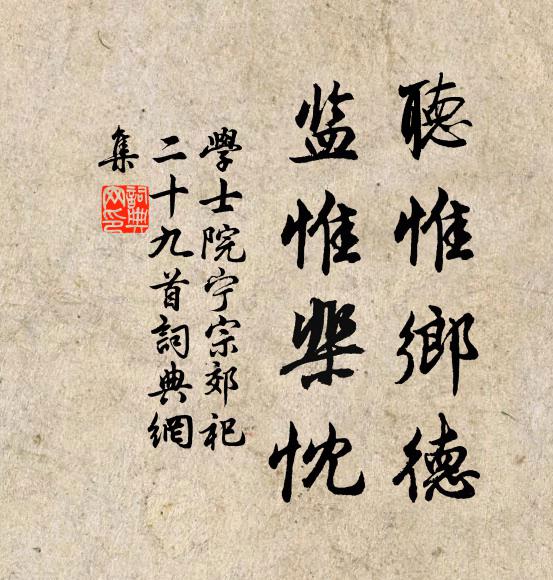 聽惟鄉德
监惟棐忱
學士院宁宗郊祀
二十九首詞典網
集
詞典網印